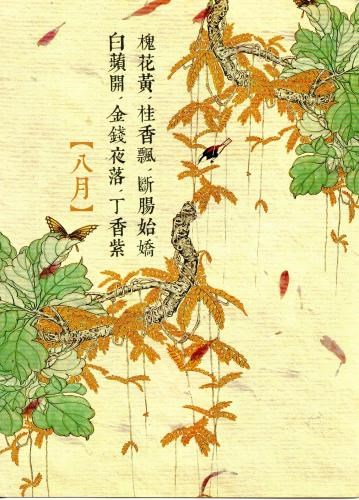 槐花黃、桂香飄、斷腸始嬌
白蘋開、金錢夜落、丁香紫
【八月】